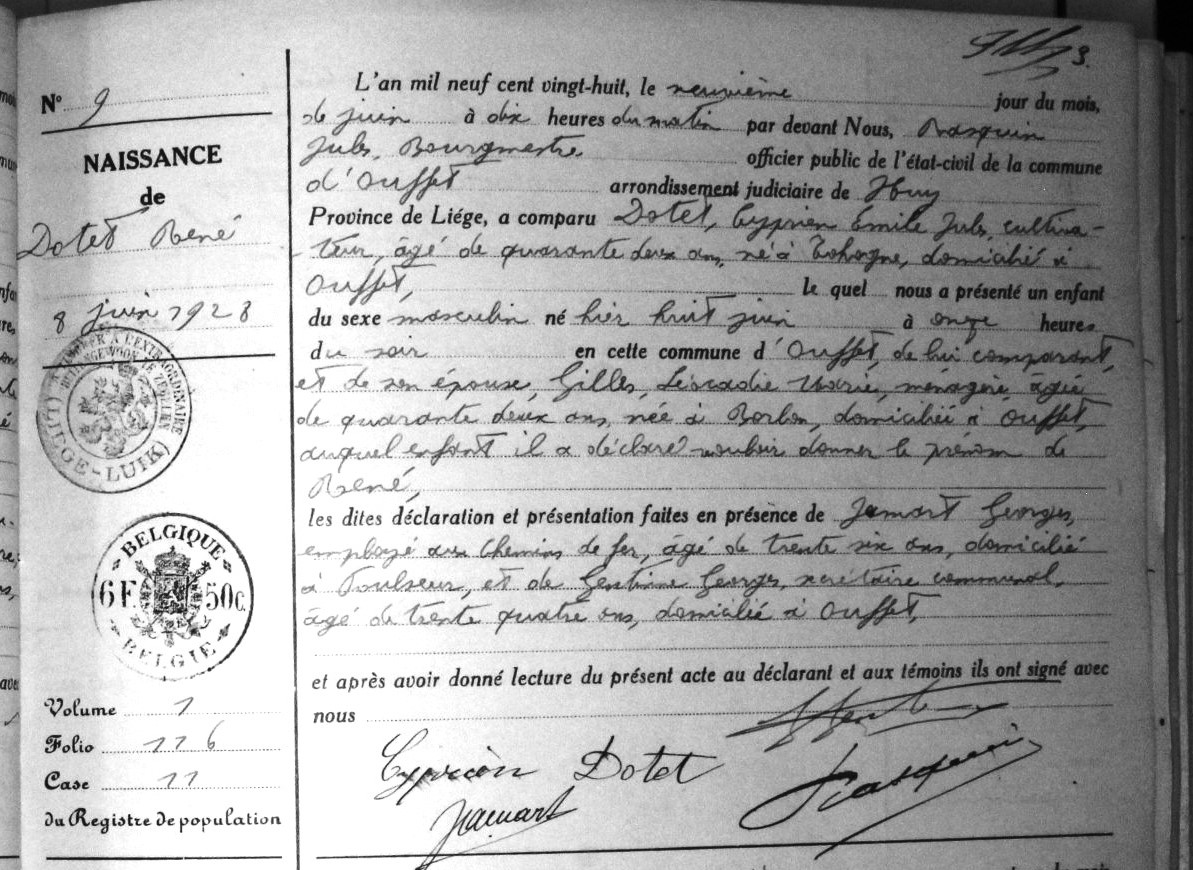 3.
N° 9
NAISSANCE
de
Dotet René
8 juin 1928
BELGIQUE
6 F. 50 C.
BELGIE
(LIÉGE-LUIK)
Volume 1
Folio 116
Case 11
du Registre de population
L'an mil neuf cent vingt-huit, le neuvième jour du mois,
de juin à dix heures du matin par devant Nous, Rasquin
Jules, Bourgmestre officier public de l'état-civil de la commune
d'Ouffet arrondissement judiciaire de Huy
Province de Liége, a comparu Dotet, Cyprien Emile Jules, cultiva-
teur, âgé de quarante deux ans, né à Tohogne, domicilié à
Ouffet, le quel nous a présenté un enfant
du sexe masculin né hier huit juin à onze heures
du soir en cette commune d'Ouffet, de lui comparant,
et de son épouse, Gilles, Léocadie Marie, ménagère âgée
de quarante deux ans, née à Borlon, domiciliée à Ouffet,
auquel enfant il a déclaré vouloir donner le prénom de
René,
les dites déclaration et présentation faites en présence de Jamart Georges,
employé aux chemins de fer, âgé de trente six ans, domicilié
à Poulseur, et de Georges, secrétaire communal,
âgé de trente quatre ans, domicilié à Ouffet,
et après avoir donné lecture du présent acte au déclarant et aux témoins ils ont signé avec
nous
Cyprien Dotet Rasquin
Jamart